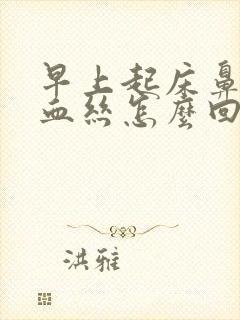 早上起床鼻
血丝怎麼回
洪雅